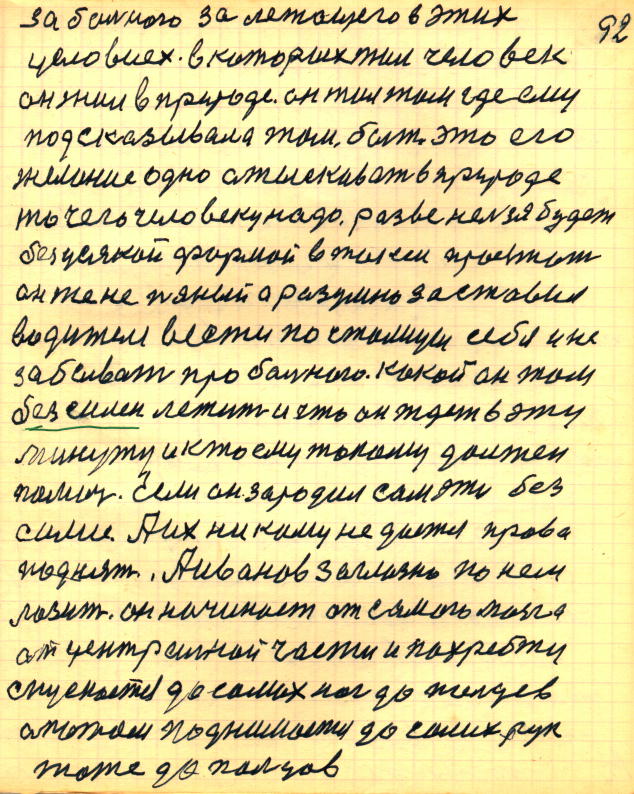 92
за болного за летащего в этих
целовиех. в которых жил человек
он жил в природе. он жил там где ему
подсказывала там, болт. это его
желание одно отыскиват в природе
то чего человеку надо. разве нелзя будет
без усякой формой в такси
он же не пяный а разумно заставил
водителя вести по столицы себя и не
забыват про болного. какой он там
без силен лежит и что он ждет в эту
минуту и кто ему токому должен
помоч. Если он зародил сам эти без
силие. А их никому не дается права
поднят. А Иванов заглазно по нем
лазит. он начинает от самого мозга
от централной части и по хребту
спускается до самых ног до палцев
а потом поднимается до самих рук
тоже до палцов